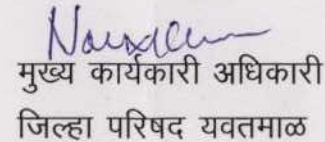 मुख्य कार्यकारी अधिकारी
जिल्हा परिषद यवतमाळ